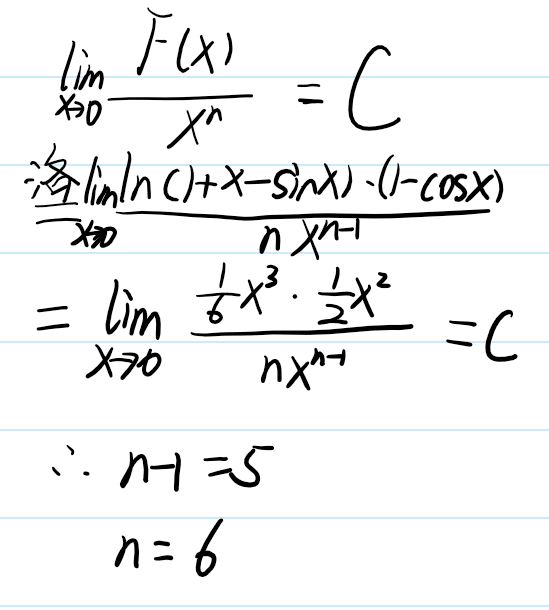 lim x→0 F(x)/x^n = C
洛 lim x→0 ln(1+x-sinx)·(1-cosx) / nx^(n-1)
= lim x→0 (1/6)x³·(1/2)x² / nx^(n-1) = C
∴ n-1=5
n=6